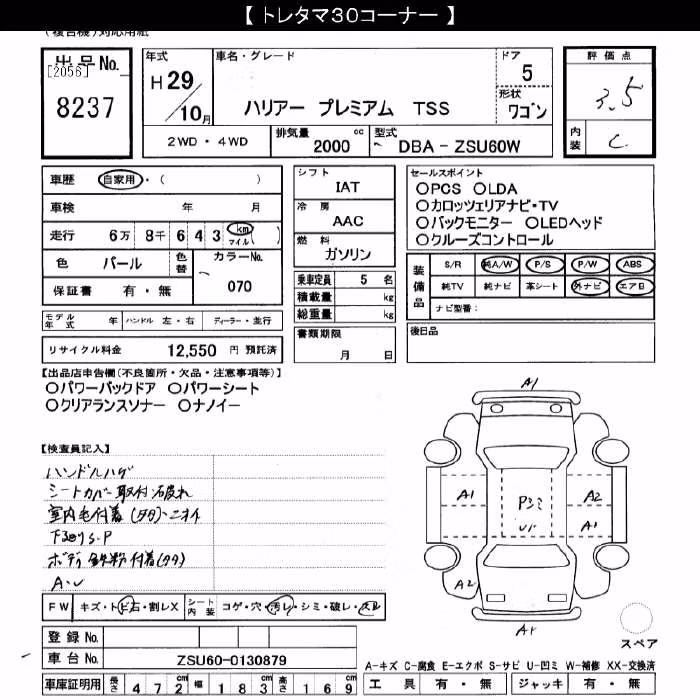 【 トレタマ30コーナー 】
(複合機)対応用紙
出品No.
[2056]
8237
年式
H29/10月
車名・グレード
ハリアー プレミアム TSS
ドア
5
形状
ワゴン
評価点
3.5
内装
C
2WD・4WD
排気量 2000 cc
型式 DBA-ZSU60W
車歴 自家用・( )
車検 年 月
走行 6万 8千 6 4 3 km マイル( )
色 パール
色替
カラーNo.
070
保証書 有・無
シフト
IAT
冷房
AAC
燃料
ガソリン
乗車定員 5 名
積載量 kg
総重量 kg
書類期限
月 日
セールスポイント
○PCS ○LDA
○カロッツェリアナビ・TV
○バックモニター ○LEDヘッド
○クルーズコントロール
装備品
S/R 純A/W P/S P/W ABS
純TV 純ナビ 革シート 外ナビ エアB
ナビ型番:
後日品
モデル年式 年 ハンドル 左・右 ディーラー・並行
リサイクル料金 12,550 円 預託済
【出品店申告欄(不良箇所・欠品・注意事項等)】
○パワーバックドア ○パワーシート
○クリアランスソナー ○ナノイー
【検査員記入】
ハンドルハゲ
シートカバー取付 破れ
室内毛付着(タタ)・ニオイ
下廻りS・P
ボディ鉄粉付着(タタ)
A・U
A1
A1
A2
Pシミ
A1
A2
A1
FW キズ・トビ石・割レX シート内装 コゲ・穴・汚レ・シミ・破レ・スレ
登録No.
車台No. ZSU60-0130879
車庫証明用 長さ 4 7 2 幅 1 8 3 高さ 1 6 9
スペア
A-キズ C-腐食 E-エクボ S-サビ U-凹ミ W-補修 XX-交換済
工具 有・無 ジャッキ 有・無